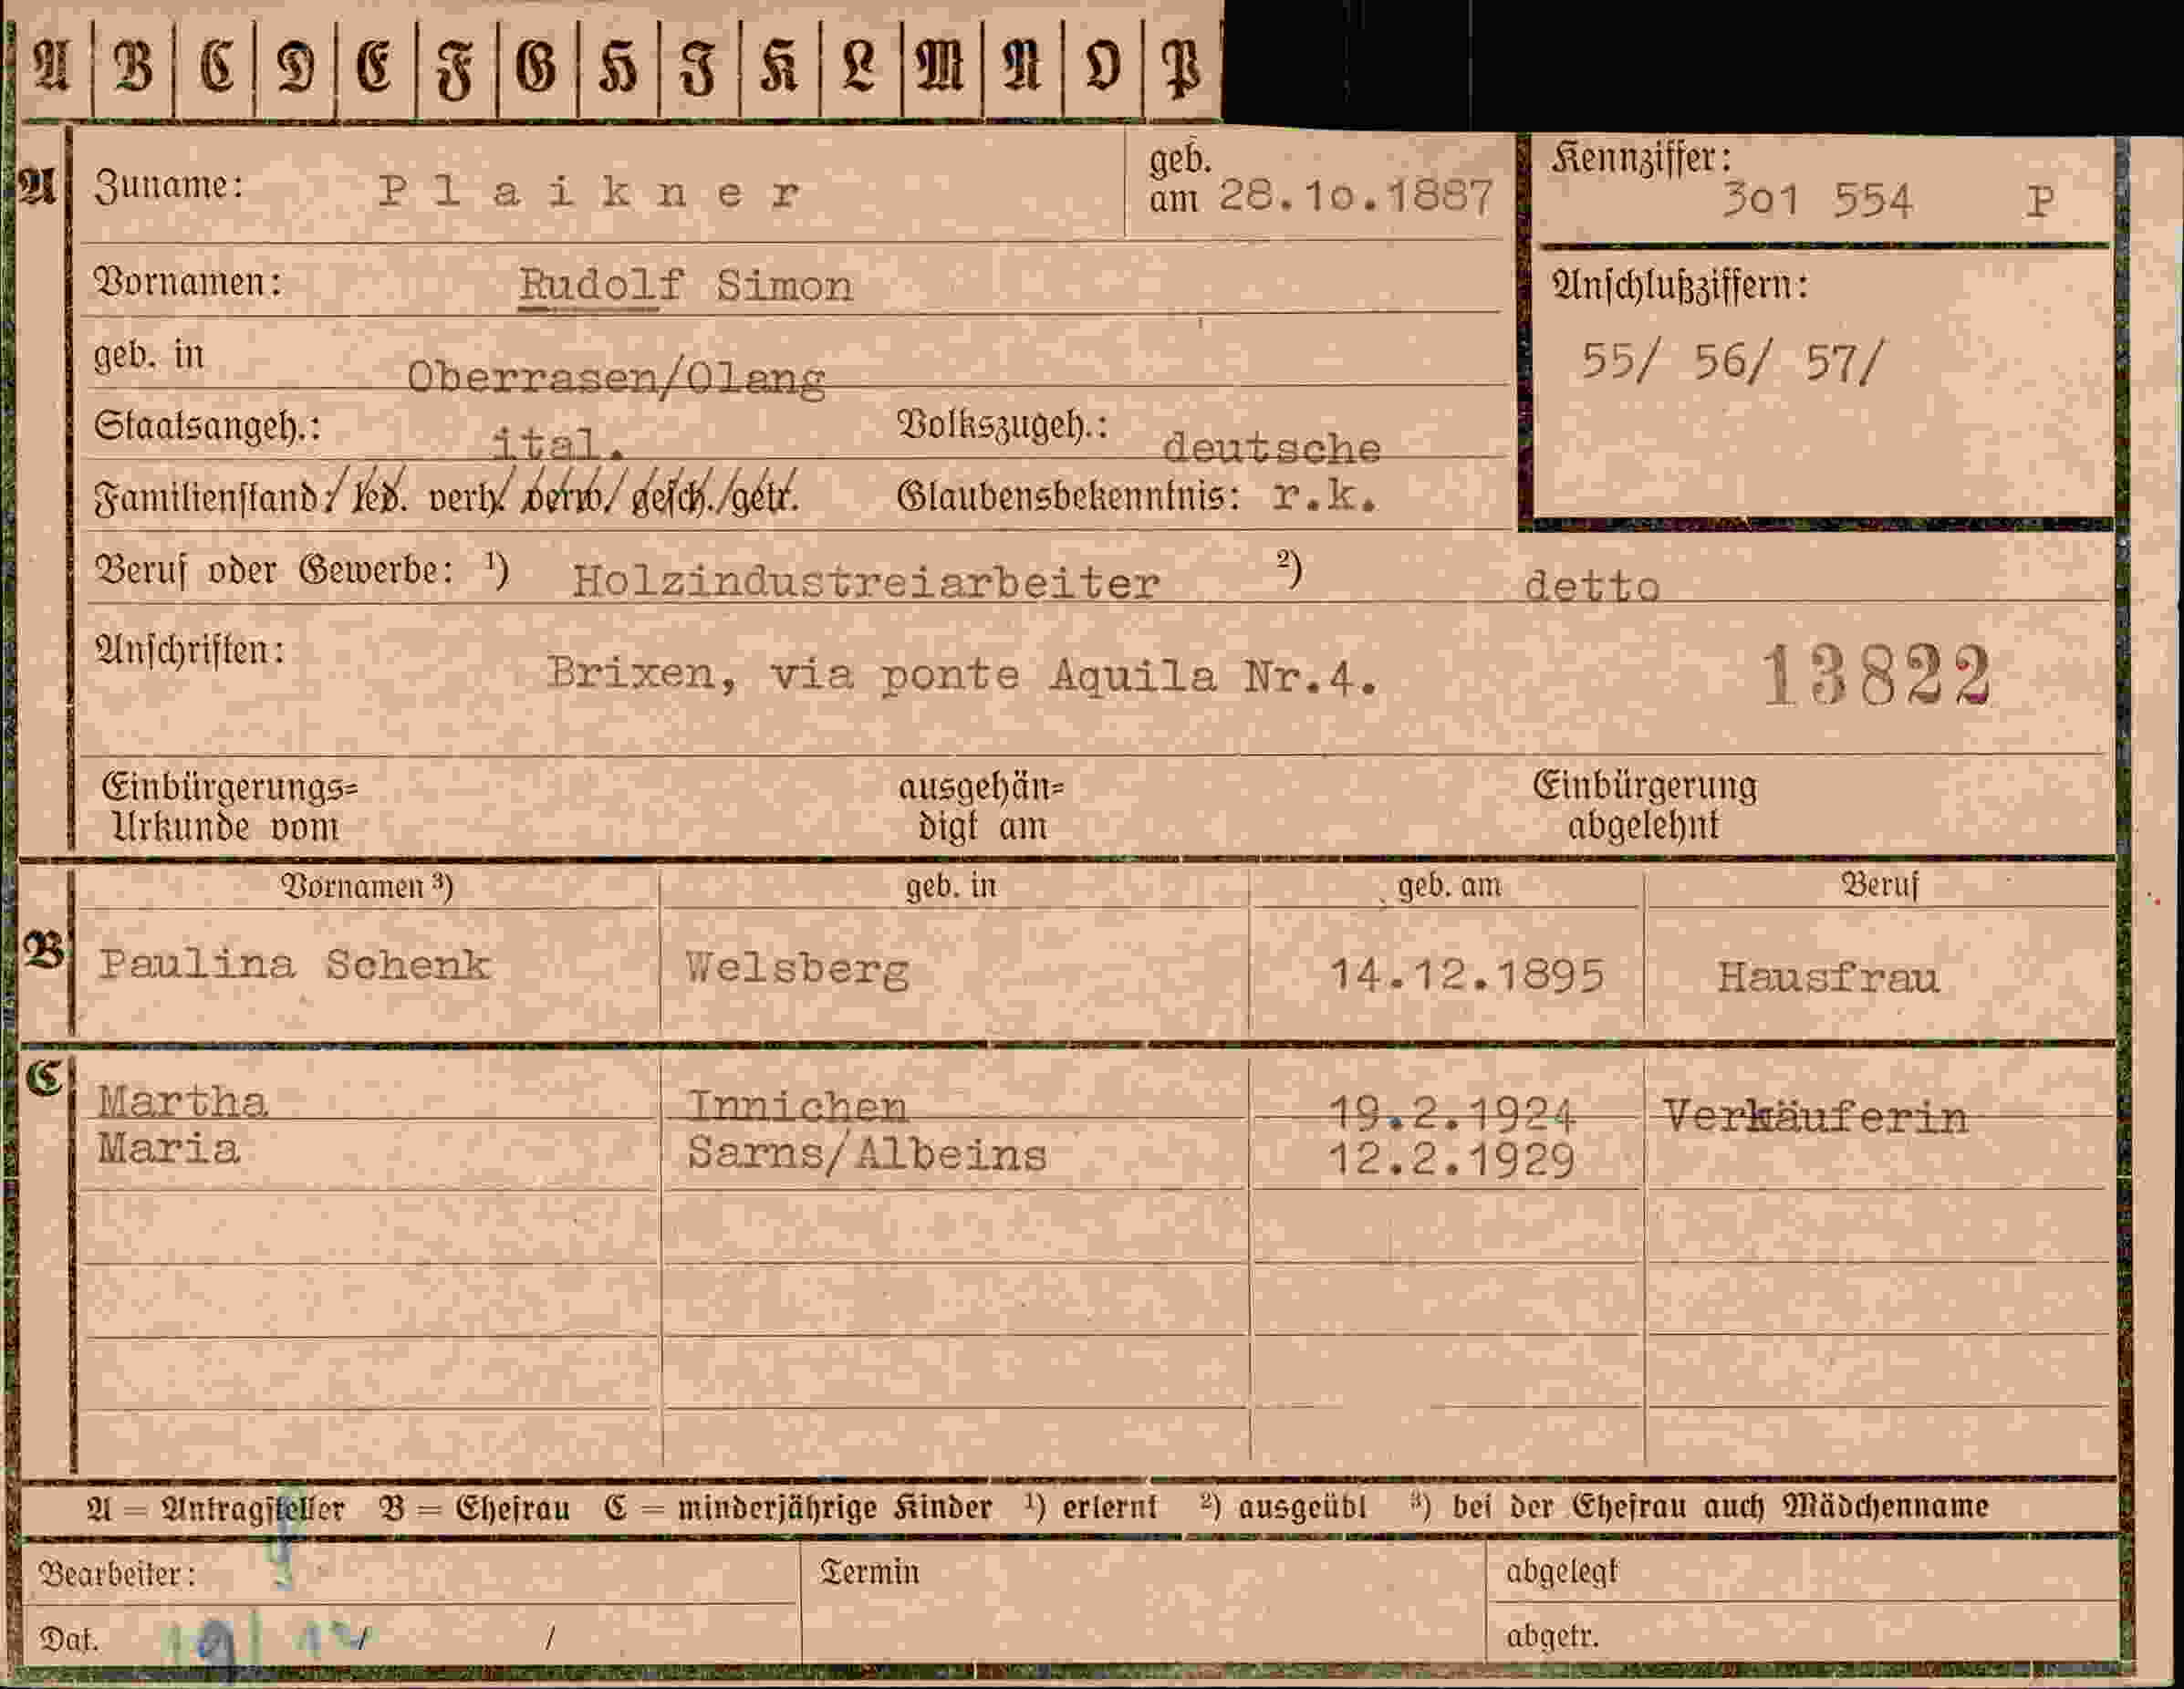 A B C D E F G H I K L M N O P
A Zuname: Plaikner geb. am 28.10.1887 Kennziffer: 301 554 P
Vornamen: Rudolf Simon Anschlußziffern:
geb. in Oberrasen/Olang 55/ 56/ 57/
Staatsangeh.: ital. Volkszugeh.: deutsche
Familienstand: / led. verh. verw / gesch. / getr. Glaubensbekenntnis: r.k.
Beruf oder Gewerbe: 1) Holzindustreiarbeiter 2) detto
Anschriften: Brixen, via ponte Aquila Nr.4. 13822
Einbürgerungs= ausgehän= Einbürgerung
Urkunde vom digt am abgelehnt
Vornamen 3) geb. in geb. am Beruf
B Paulina Schenk Welsberg 14.12.1895 Hausfrau
C Martha Innichen 19.2.1924 Verkäuferin
Maria Sarns/Albeins 12.2.1929
A = Antragsteller B = Ehefrau C = minderjährige Kinder 1) erlernt 2) ausgeübt 3) bei der Ehefrau auch Mädchenname
Bearbeiter: Termin abgelegt
Dat. / / abgetr.